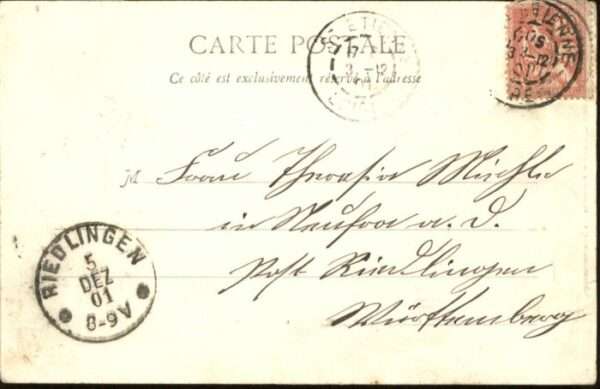 CARTE POSTALE
Ce côté est exclusivement réservé à l'adresse
M Frau Theresia Miehle
in Neufra a. D.
Post Riedlingen
Württemberg
RIEDLINGEN
5
DEZ
01
8-9V
ST ETIENNE
3 -12
ETIENNE
3 -12